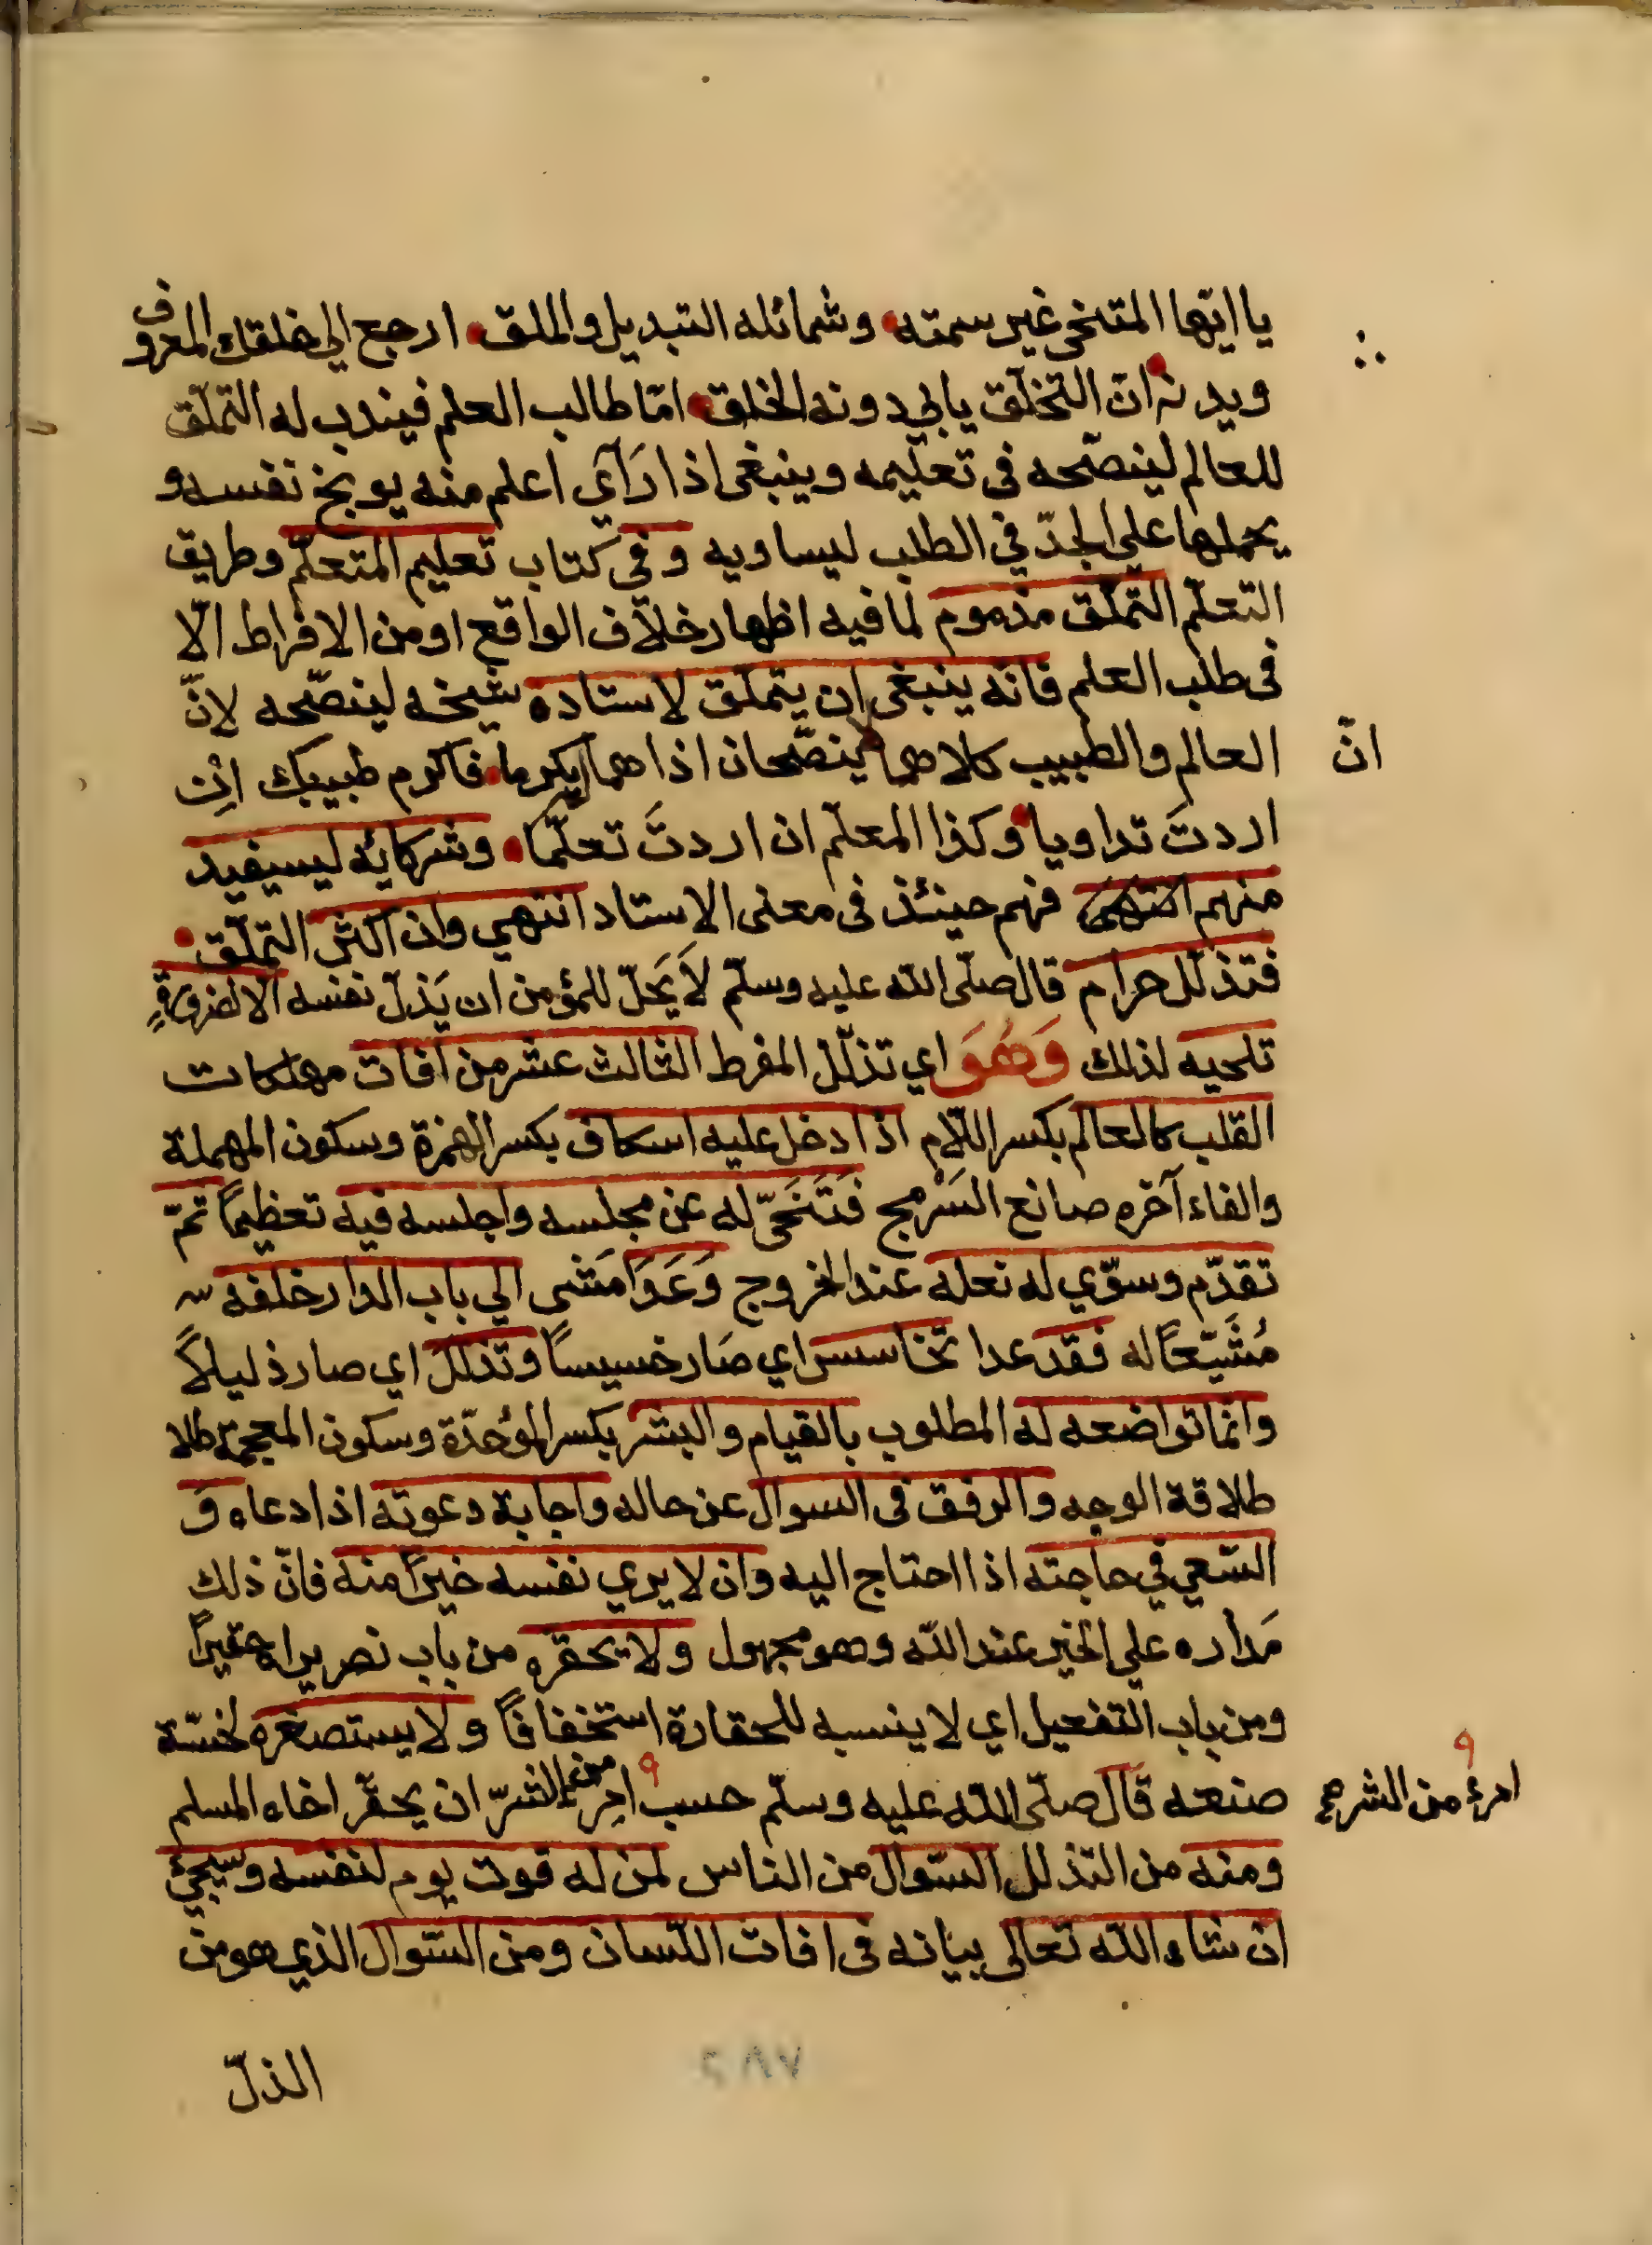 يا ايّها المتنحى غير سمته وشمائله التبديل والملق ارجع الي خلقك المعروف
ويدنه ان التخلّق يابي دونه الخلق امّا طالب العلم فيندب له التملّق
للعالم لينصّحه فى تعليمه وينبغى اذا رَآي اعلم منه يوبخ نفسه و
يحملها على الجدّ في الطلب ليساويه وفي كتاب تعليم المتعلّم وطريق
التعلّم التملّق مذموم لما فيه اظهار خلاف الواقع او من الافراط الّا
فى طلب العلم فانه ينبغى ان يتملّق لاستاده شيخه لينصّحه لانّ
انّ
العالم والطبيب كلاهما لينصّحان اذا هما يكرما فاكرم طبيبك اِن
اردتَ تداويا وكذا المعلّم ان اردتَ تعلّما وشركائه ليسيفيد
منهم انتهى فهم حينئذ فى معنى الاستاد انتهي وان اكثر التملّق
فتذلّل حرام قال صلّى اللّه عليه وسلّم لاَ يَحلّ للمؤمن ان يَذلّ نفسه الا لضرورةٍ
تلحيه لذلك وَهُوَ اي تذلّل المفرط الثالث عشر من آفات مهلكات
القلب كالعالم بكسر اللّام اذا دخل عليه اسكاف بكسر الهمزة وسكون المهملة
والفاء آخره صانع السَرْمج فَتَنَحّى له عن مجلسه واجلسه فيه تعظيماً ثمّ
تقدّم وسوّي له نعله عند الخروج وَعَدَا مَشى الي باب الدار خلفه
مُشَيّعًا له فقد عدا تخاسس اي صَار خسيساً وتذلّل اي صار ذليلاً
وانما تواضعه له المطلوب بالقيام والبشر بكسر المؤحدّة وسكون المعجمة طلا
طلاقة الوجه والرفق فى السوال عن حاله واجابة دعوته اذا دعاه وَ
السّعي في حاجته اذا احتاج اليه وان لا يري نفسه خيراً منه فانّ ذلك
مَداره علي الخير عند اللّه وهو مجهول ولا يحقره من باب نصر يراه حقيراً
ومن باب التفعيل اي لا ينسبه للحقارة استخفافاً ولا يستصغره لخسّة
صنعه قال صلّى اللّه عليه وسلّم حسب امرء من الشرّ ان يحقّر اخاه المسلم
امرء من الشر صح
ومنه من التذلل السّوال من الناس لمن له قوت يوم لنفسه وسيجئ
ان شاء اللّه تعالى بيانه فى افات اللّسان ومن السّوال الذي هو من
الذلّ